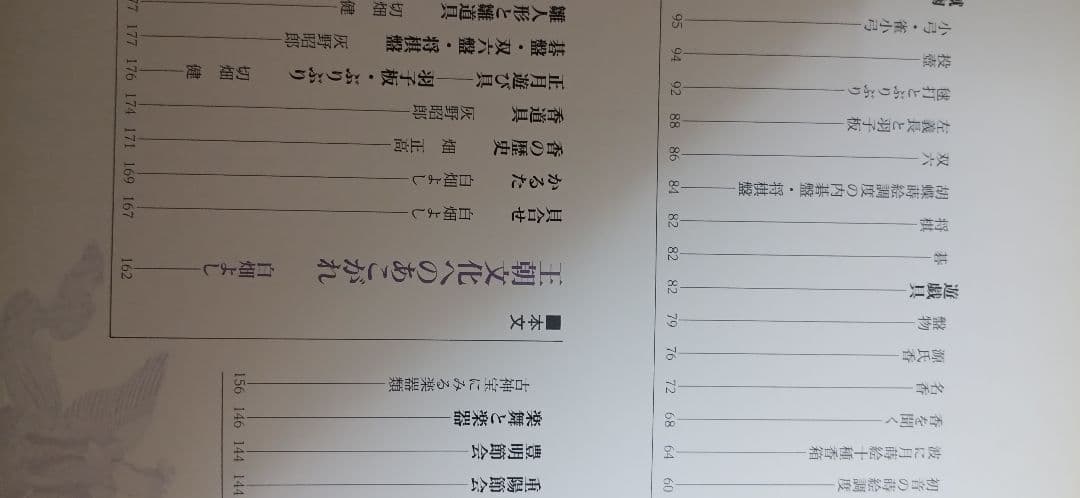 初音の蒔絵調度 60
波に月蒔絵十種香箱 64
香を聞く 68
名香 72
源氏香 76
盤物 79
遊戯具 82
碁 82
将棋 82
胡蝶蒔絵調度の内碁盤・将棋盤 84
双六 86
左義長と羽子板 88
毬打とぶりぶり 92
投壺 94
小弓・雀小弓 95
重陽節会 144
豊明節会 144
楽舞と楽器 146
古神宝にみる楽器類 156
■本文
王朝文化へのあこがれ 白畑よし 162
貝合せ 白畑よし 167
かるた 白畑よし 169
香の歴史 畑正高 171
香道具 灰野昭郎 174
正月遊び具——羽子板・ぶりぶり 切畑健 176
碁盤・双六盤・将棋盤 灰野昭郎 177
雛人形と雛道具 切畑健